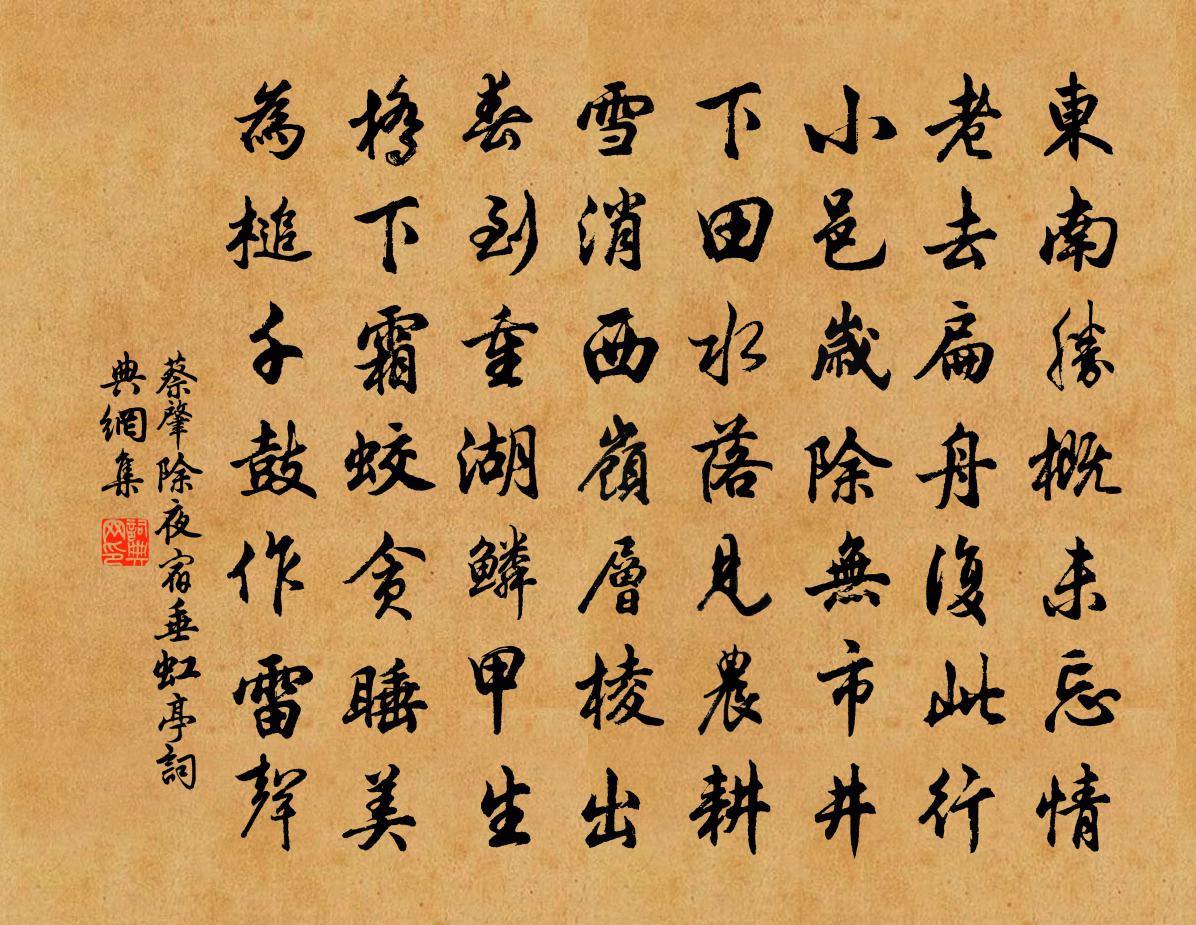 東南勝概未忘情
老去扁舟復此行
小邑歲除無市井
下田水落見農耕
雪消西嶺層棱出
春到重湖鱗甲生
橋下霜蛟貪睡美
為槌千鼓作雷聲
蔡肇除夜宿垂虹亭詞
典網集
詞典网印